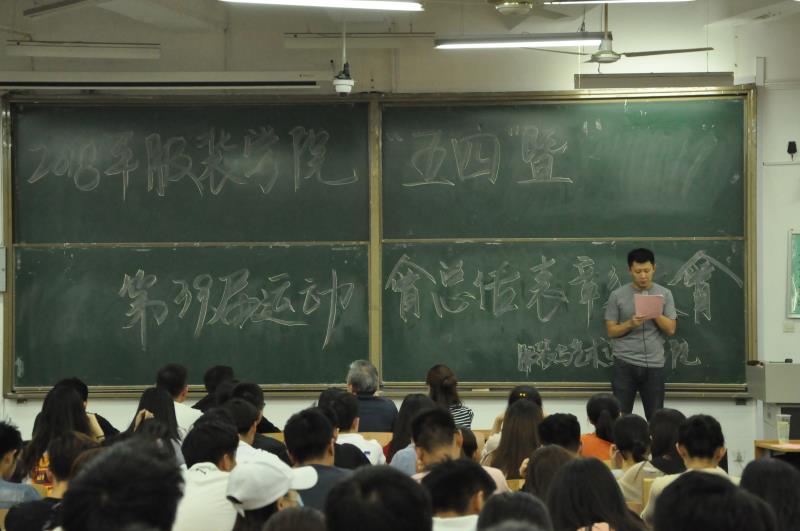 2018年服装学院 "五四"暨
第39届运动會总结表彰大會
服装与艺术 院